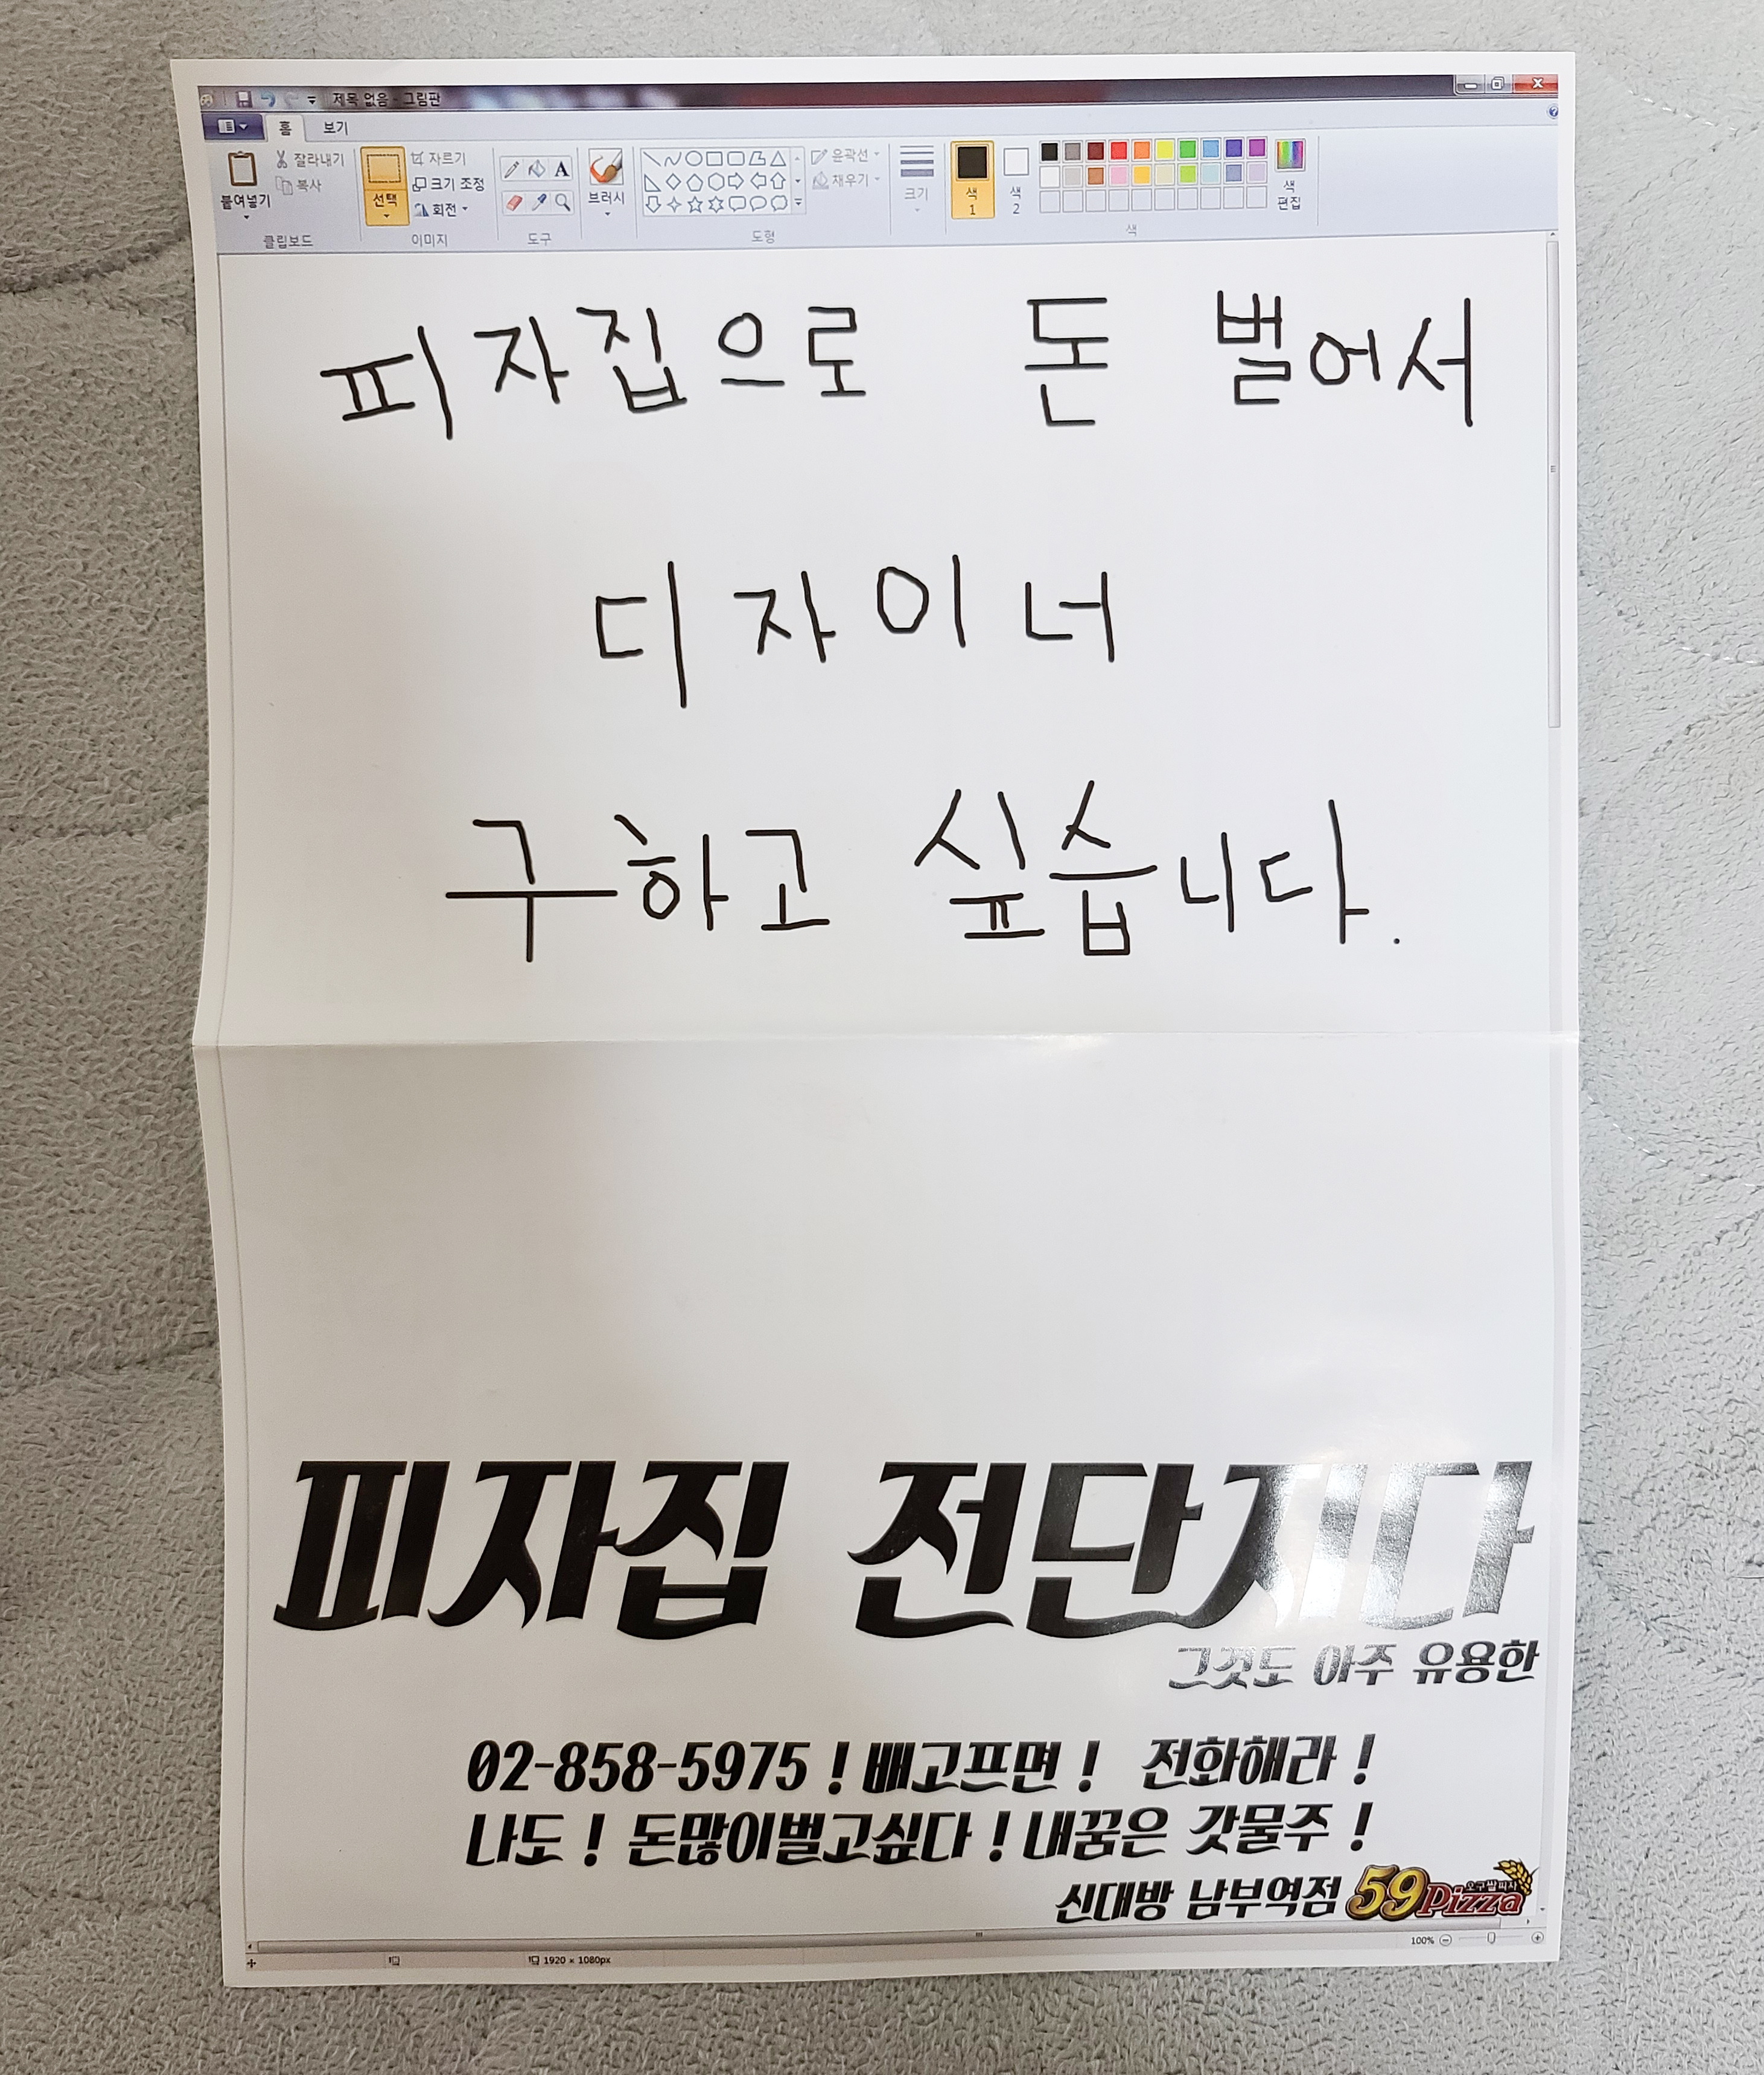 제목 없음 - 그림판
홈 보기
붙여넣기 잘라내기 복사 선택 자르기 크기 조정 회전 A 브러시 윤곽선 채우기 크기 색 1 색 2 색 편집
클립보드 이미지 도구 도형 색
피자집으로 돈 벌어서
디자이너
구하고 싶습니다.
피자집 전단지다
그것도 아주 유용한
02-858-5975! 배고프면! 전화해라!
나도! 돈많이벌고싶다! 내꿈은 갓물주!
신대방 남부역점 59Pizza 오구쌀피자
100%
1920 × 1080px